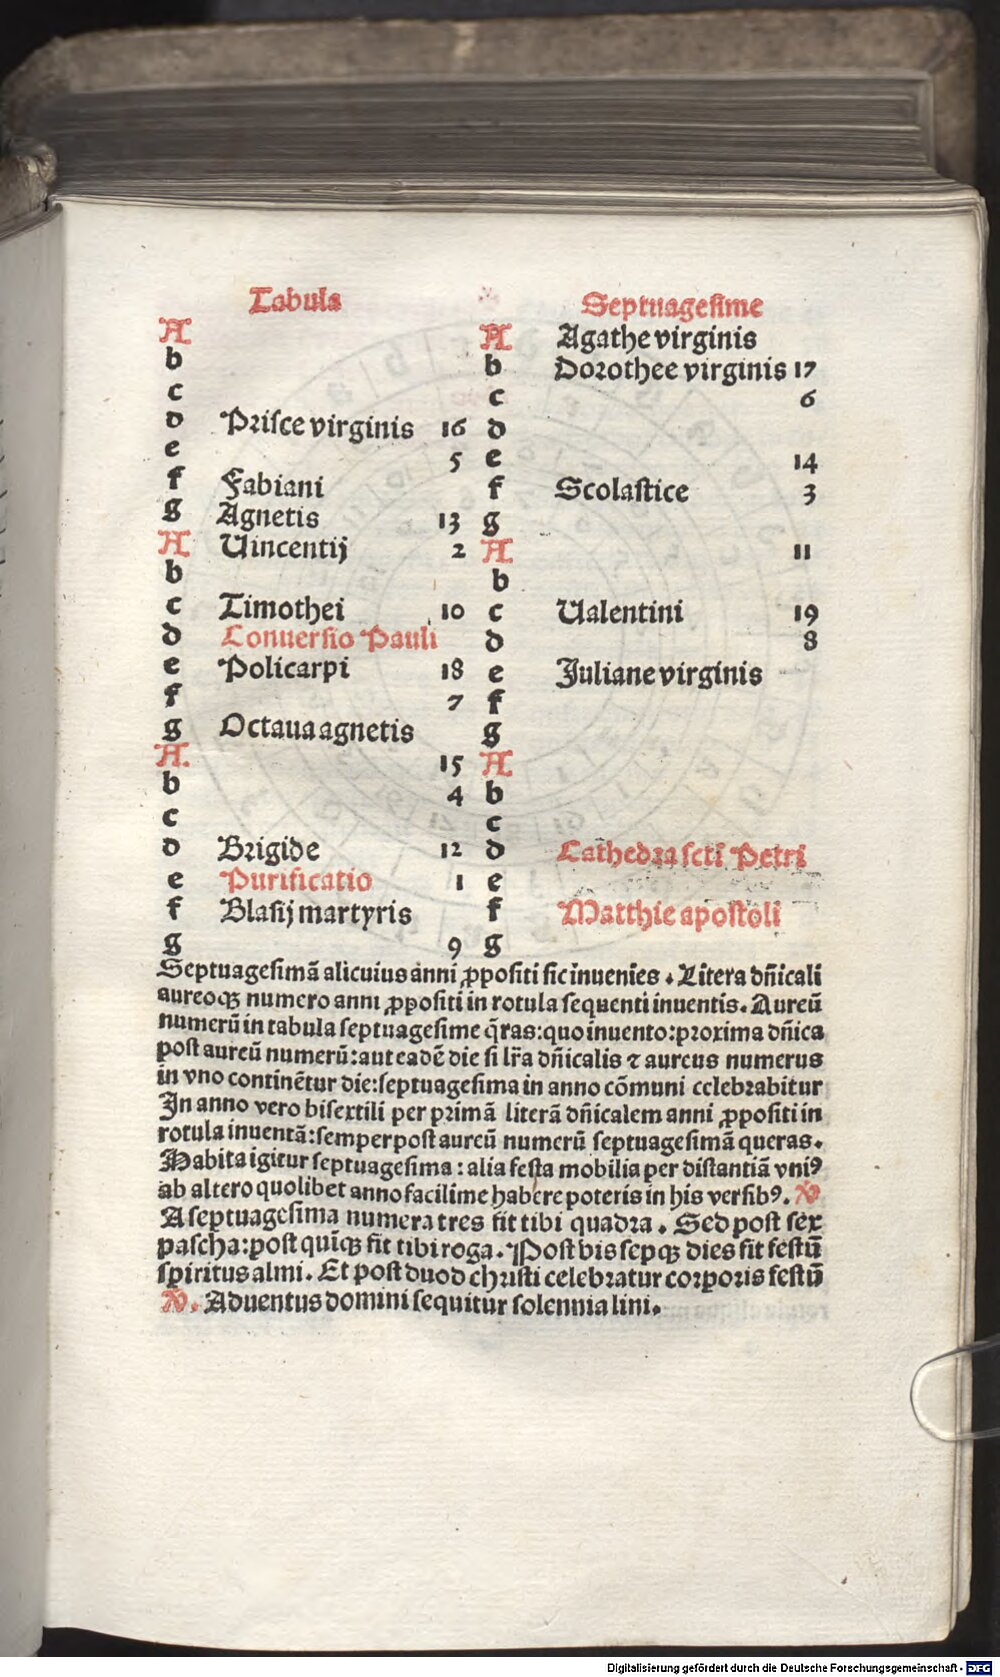 Tabula Septuagesime
A A Agathe virginis
b b Dorothee virginis 17
c c 6
d Prisce virginis 16 d
e 5 e 14
f Fabiani f Scolastice 3
g Agnetis 13 g
A Uincentij 2 A 11
b b
c Timothei 10 c Ualentini 19
d Conuersio Pauli d 8
e Policarpi 18 e Juliane virginis
f 7 f
g Octaua agnetis g
A. 15 A
b 4 b
c c
d Brigide 12 d Cathedra scti Petri
e Purificatio 1 e
f Blasij martyris f Matthie apostoli
g 9 g
Septuagesimā alicuius anni ꝓpositi sic inuenies . Litera dn̄icali
aureoqꝫ numero anni ꝓpositi in rotula sequenti inuentis. Aureū
numerū in tabula septuagesime q̄ras: quo inuento: proxima dn̄ica
post aureū numerū: aut eadē die si lr̄a dn̄icalis ⁊ aureus numerus
in vno continētur die: septuagesima in anno cōmuni celebrabitur
In anno vero bisextili per primā literā dn̄icalem anni ꝓpositi in
rotula inuentā: semper post aureū numerū septuagesimā queras.
Habita igitur septuagesima: alia festa mobilia per distantiā vniꝰ
ab altero quolibet anno facilime habere poteris in his versibꝰ.
A septuagesima numera tres fit tibi quadra . Sed post sex
pascha: post quīqꝫ fit tibi roga. Post bis sepqꝫ dies fit festū
spiritus almi. Et post duod christi celebratur corporis festū
Aduentus domini sequitur solennia lini.
Digitalisierung gefördert durch die Deutsche Forschungsgemeinschaft - DFG